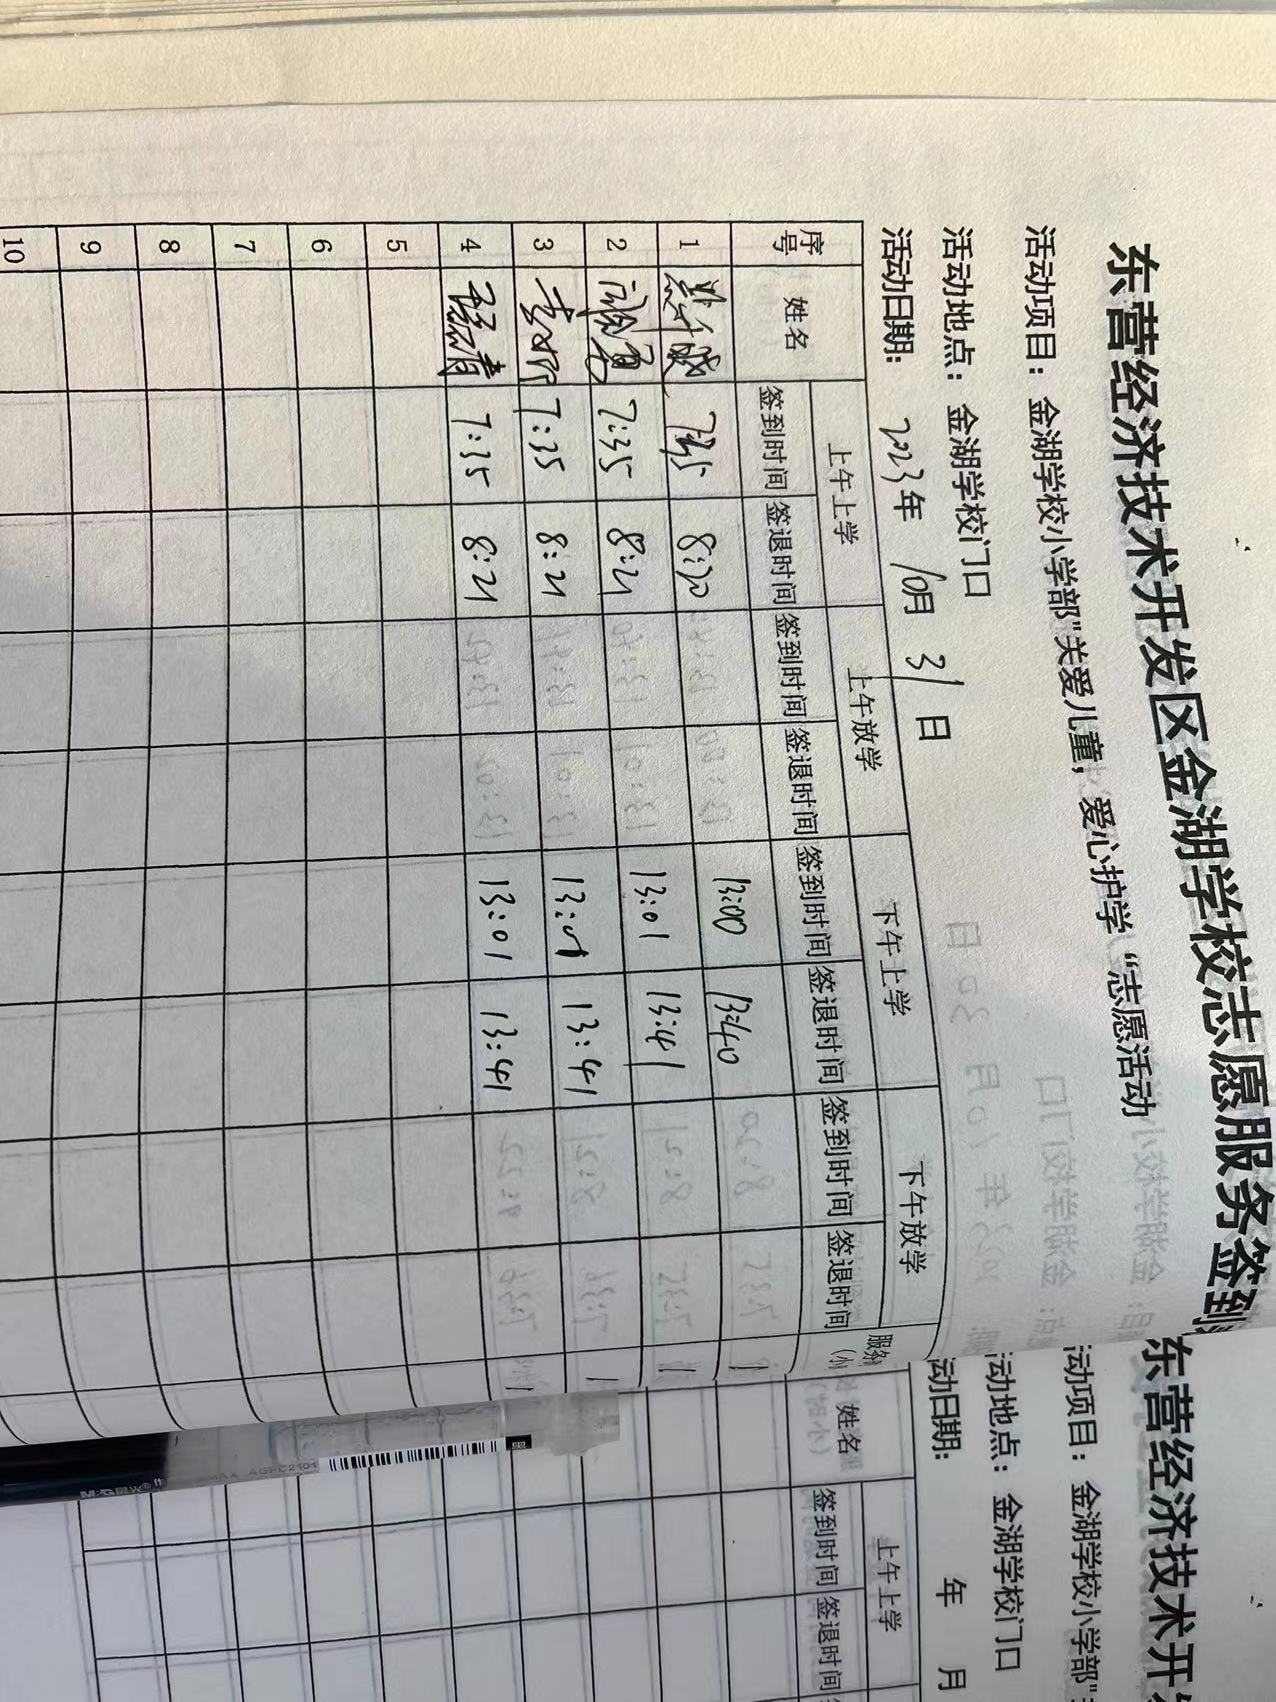 东营经济技术开发区金湖学校志愿服务签到
活动项目：金湖学校小学部"关爱儿童，爱心护学"志愿活动
活动地点：金湖学校门口
活动日期：2023年 10月 31日
序号 姓名 上午上学 上午放学 下午上学 下午放学 服务
签到时间 签退时间 签到时间 签退时间 签到时间 签退时间 签到时间 签退时间
1 7:35 8:20 13:00 13:40
2 7:35 8:21 13:01 13:41
3 7:35 8:21 13:01 13:41
4 7:35 8:21 13:01 13:41
5
6
7
8
9
10
东营经济技术开
活动项目：金湖学校小学部"
活动地点：金湖学校门口
动日期： 年 月
姓名 上午上学
签到时间 签退时间
M&G晨光 AGPC2101